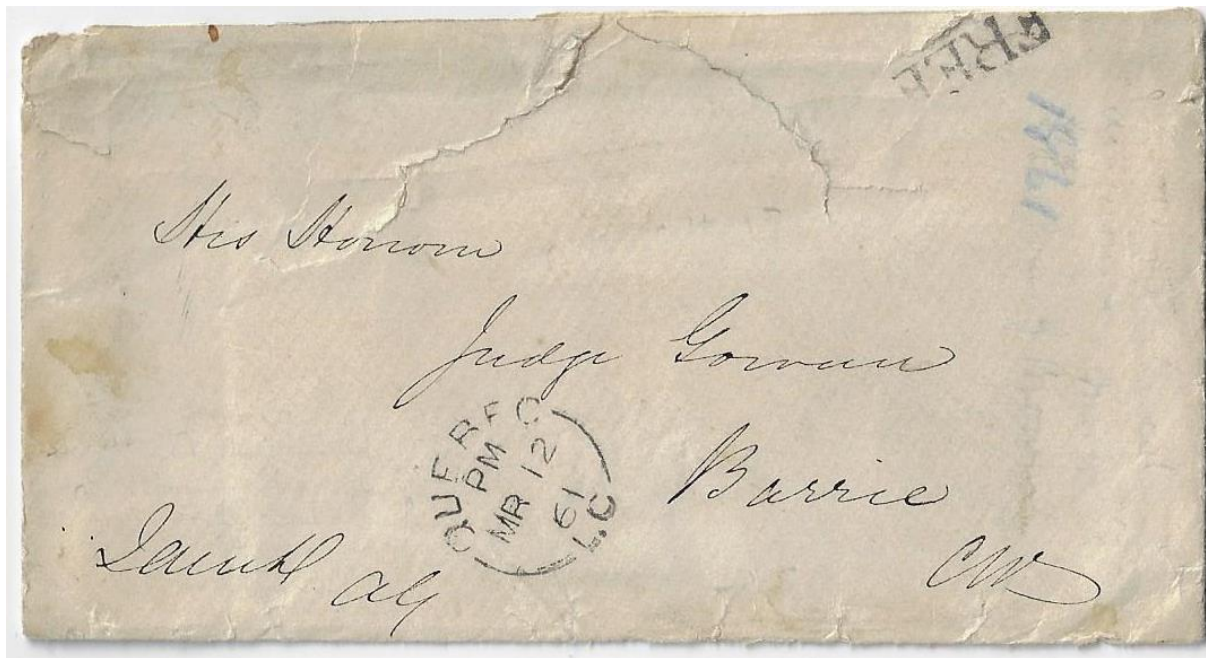 FREE
1861
His Honour
Judge Gowan
Barrie
CW
QUEBEC
PM
MR 12
61
L.C
AG